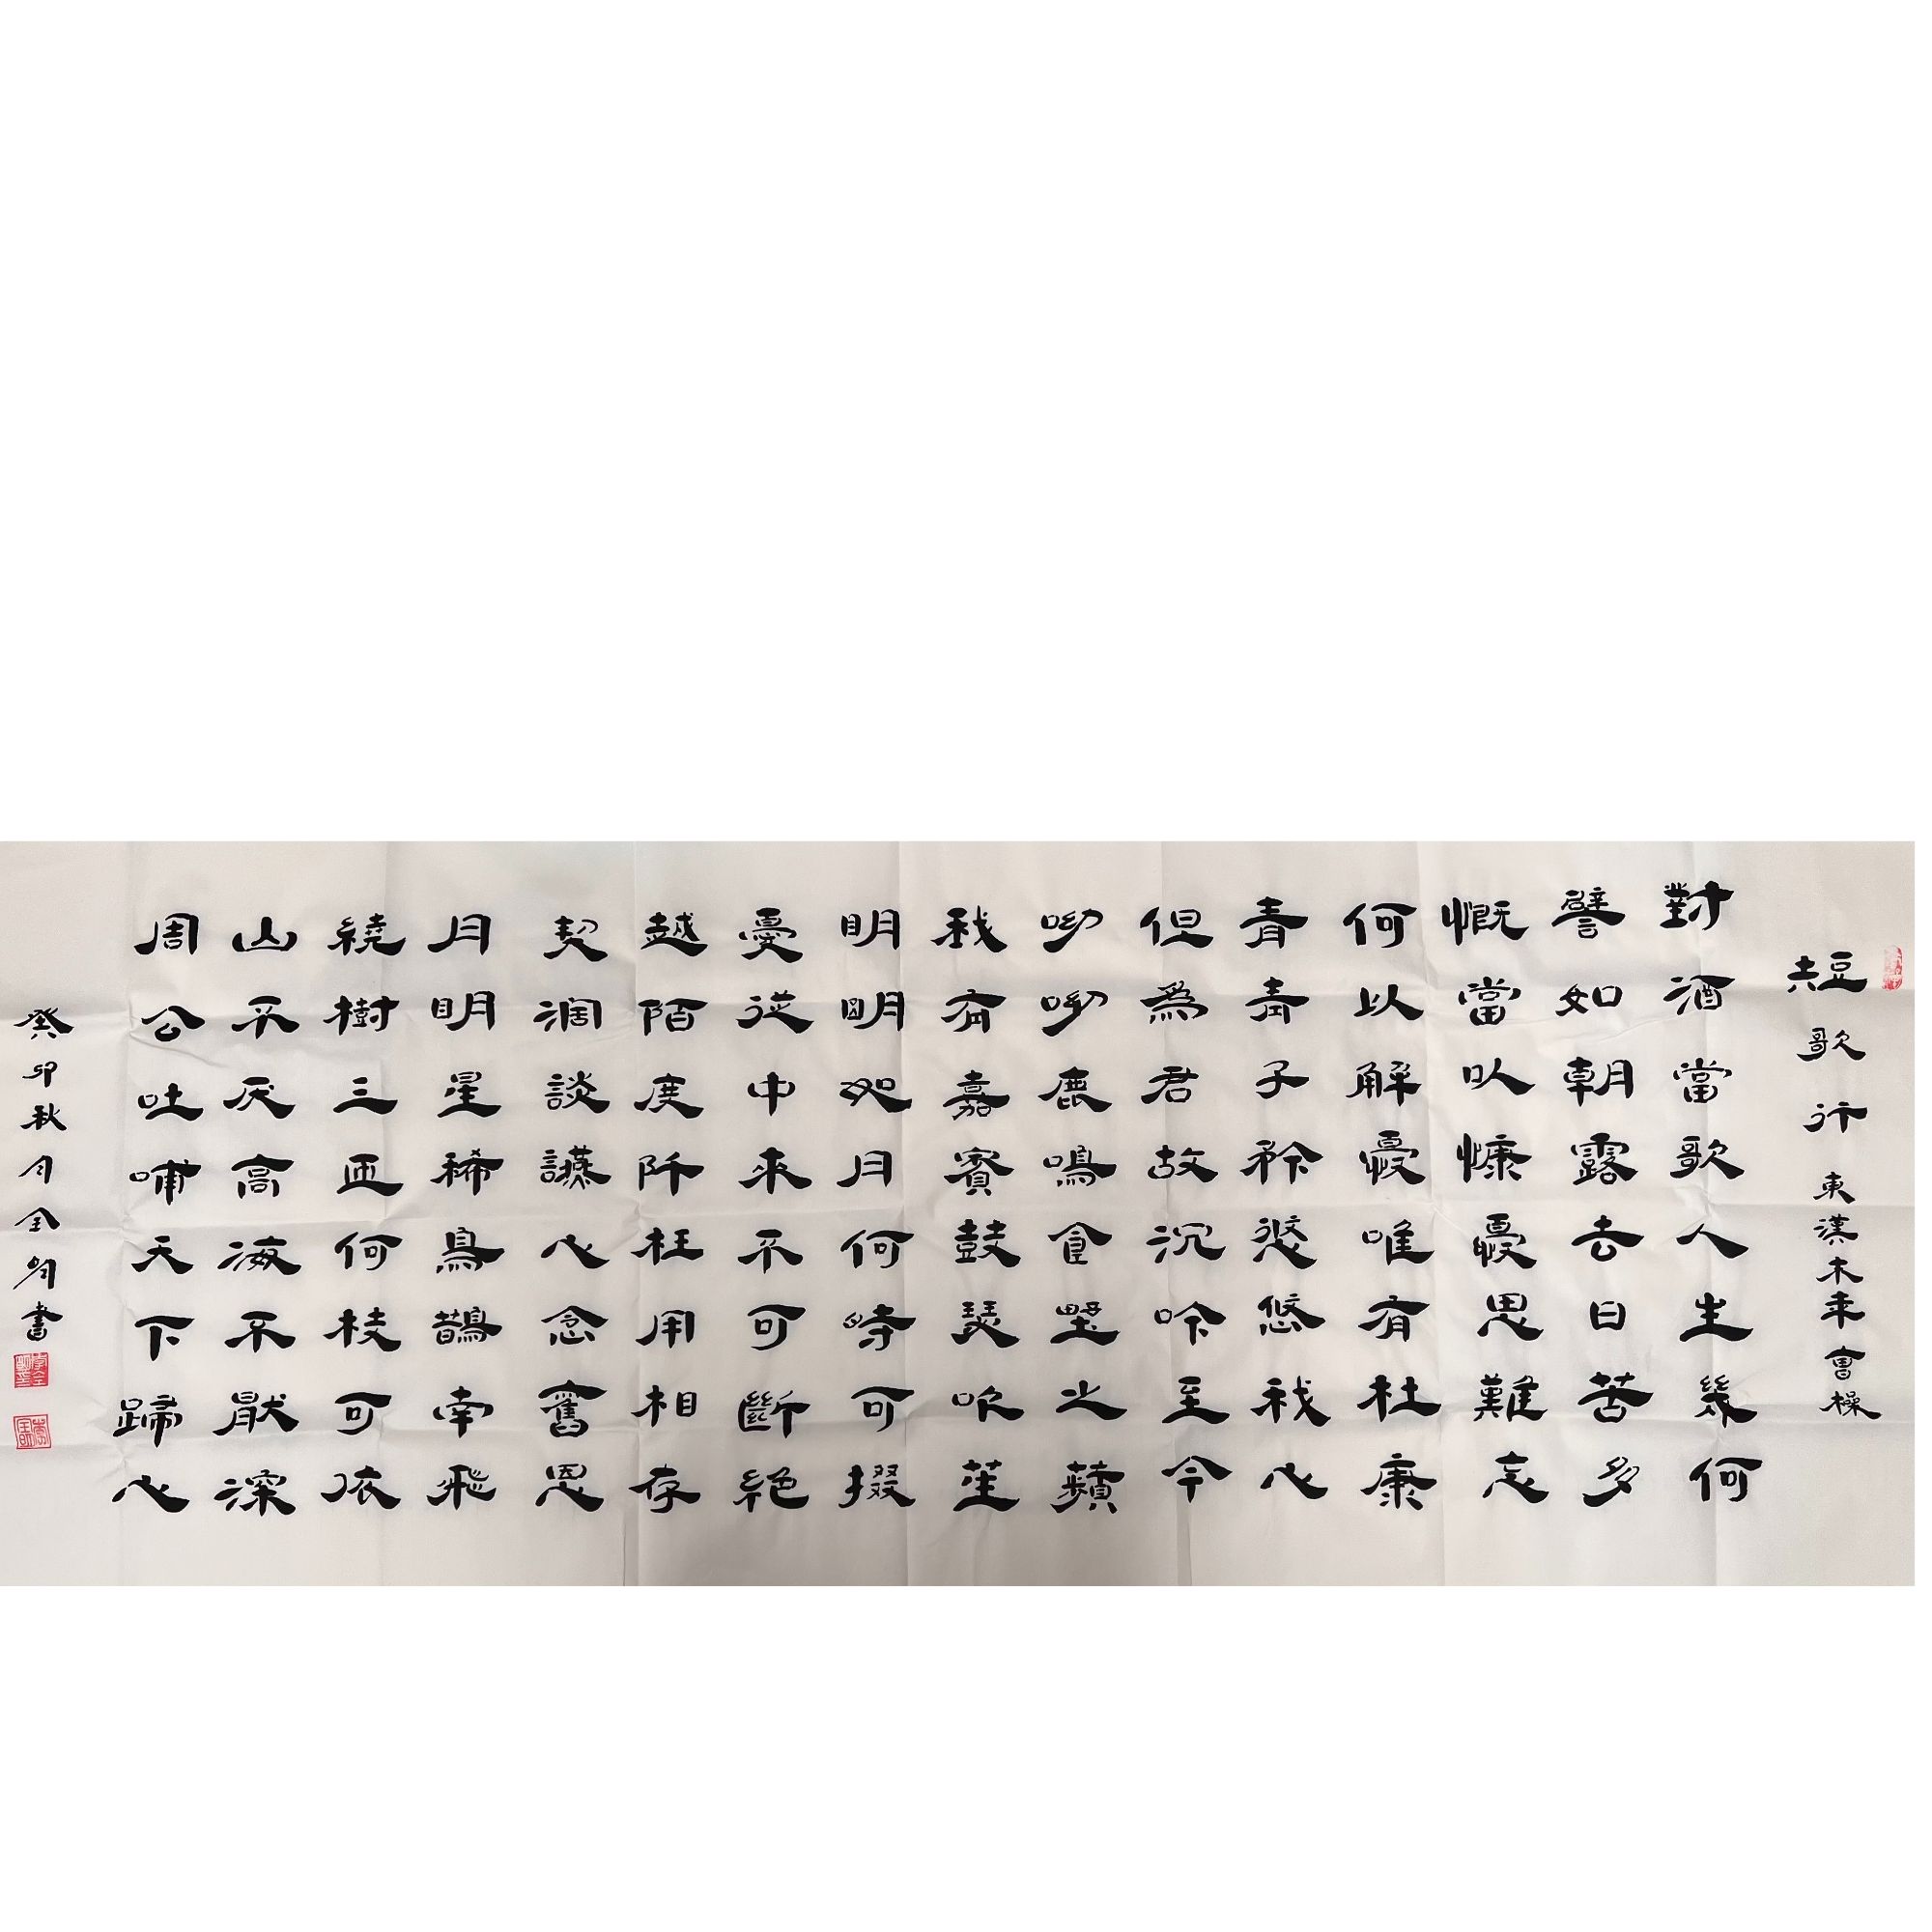 短歌行 東漢末年曹操
對酒當歌人生幾何
譬如朝露去日苦多
慨當以慷憂思難忘
何以解憂唯有杜康
青青子衿悠悠我心
但為君故沉吟至今
呦呦鹿鳴食野之蘋
我有嘉賓鼓瑟吹笙
明明如月何時可掇
憂從中來不可斷絕
越陌度阡枉用相存
契濶談讌心念舊恩
月明星稀烏鵲南飛
繞樹三匝何枝可依
山不厌高海不猒深
周公吐哺天下歸心
癸卯秋月全明書